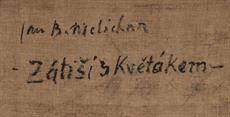 Jan B. Melichar
- Zátiší s Květákem -